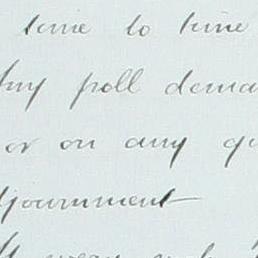 time to time
Any poll dema
or on any qu
djournment